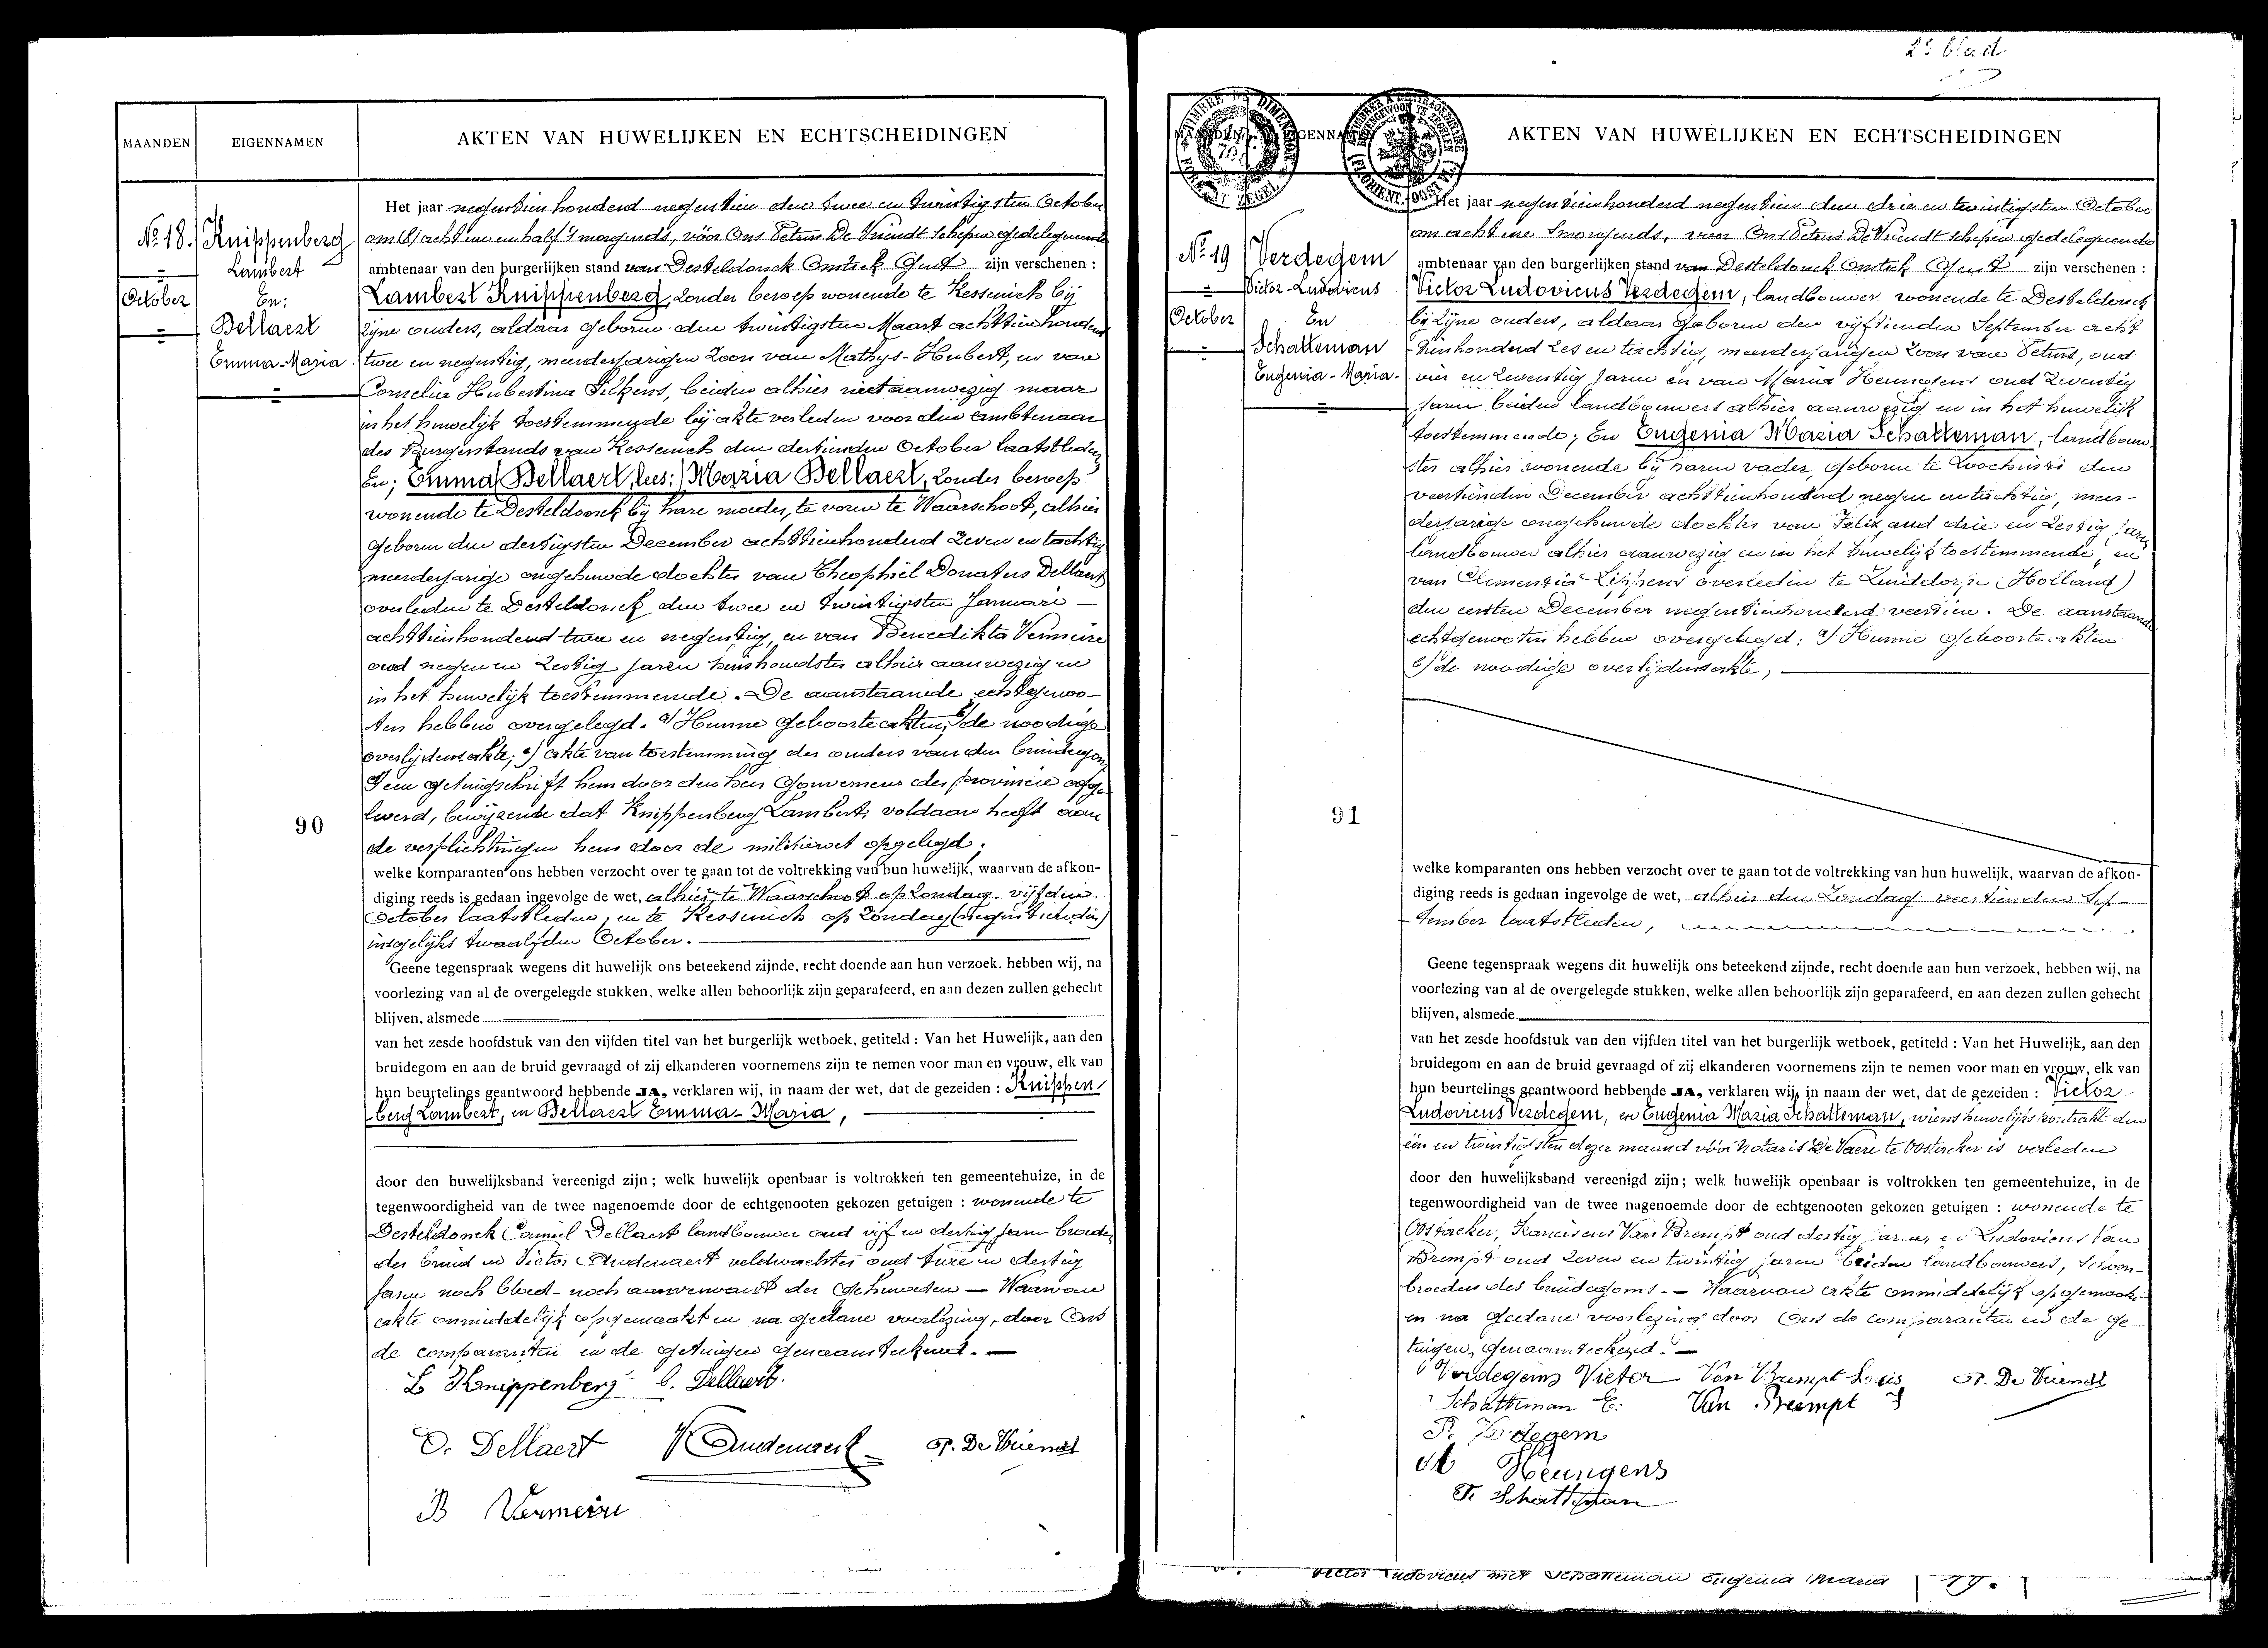 2e blad
MAANDEN
EIGENNAMEN
AKTEN VAN HUWELIJKEN EN ECHTSCHEIDINGEN
No 18.
October
Knippenberg
Lambert
En:
Bellaert
Emma-Maria
90
Het jaar negentien honderd negentien den twee en twintigsten October
om (8) acht ure en half 's morgends, vóór Ons Petrus De Vriendt schepen gedelegueerde
ambtenaar van den burgerlijken stand van Desteldonck Omtrek Gent zijn verschenen :
Lambert Knippenberg, zonder beroep wonende te Kessenich bij
zijne ouders, aldaar geboren den twintigsten Maart achttienhonderd
twee en negentig, meerderjarigen zoon van Mathys-Hubert, en van
Cornelia Hubertina Silkens, beiden alhier niet aanwezig maar
in het huwelijk toestemmende bij akte verleden voor den ambtenaar
des Burgerstands van Kessenich den dertienden October laatstleden
En; Emma Bellaert, lees: Maria Bellaert, zonder beroep
wonende te Desteldonck bij hare moeder, te voren te Waarschoot, alhier
geboren den dertigsten December achttienhonderd zeven en tachtig
meerderjarige ongehuwde dochter van Theophiel Donatus Dellaert
overleden te Desteldonck den twee en twintigsten Januari
achttienhonderd twee en negentig, en van Benedikta Vermeire
oud negen en zestig jaren huishoudster alhier aanwezig en
in het huwelijk toestemmende. De aanstaande echtgenoo-
ten hebben overgelegd. a) Hunne geboorteakten, b) de noodige
overlijdensakte; c) akte van toestemming der ouders van den bruidegom
d een getuigschrift hem door den heer Gouverneur der provincie afge
leverd, bewijzende dat Knippenberg Lambert, voldaan heeft aan
de verplichtingen hem door de militiewet opgelegd;
welke komparanten ons hebben verzocht over te gaan tot de voltrekking van hun huwelijk, waarvan de afkon-
diging reeds is gedaan ingevolge de wet, alhier en te Waarschoot op Zondag vijfden
October laatstleden, en te Kessenich op Zondag (negentienden)
insgelijks twaalfden October.
Geene tegenspraak wegens dit huwelijk ons beteekend zijnde, recht doende aan hun verzoek, hebben wij, na
voorlezing van al de overgelegde stukken, welke allen behoorlijk zijn geparafeerd, en aan dezen zullen gehecht
blijven, alsmede
van het zesde hoofdstuk van den vijfden titel van het burgerlijk wetboek, getiteld : Van het Huwelijk, aan den
bruidegom en aan de bruid gevraagd of zij elkanderen voornemens zijn te nemen voor man en vrouw, elk van
hun beurtelings geantwoord hebbende JA, verklaren wij, in naam der wet, dat de gezeiden : Knippen
berg Lambert, en Bellaert Emma-Maria,
door den huwelijksband vereenigd zijn; welk huwelijk openbaar is voltrokken ten gemeentehuize, in de
tegenwoordigheid van de twee nagenoemde door de echtgenooten gekozen getuigen : wonende te
Desteldonck Camiel Dellaert landbouwer oud vijf en dertig jaren broeder
der bruid en Victor Audenaert veldwachter oud twee en dertig
jaren noch bloed- noch aanverwant der gehuwden — Waarvan
akte onmiddelijk opgemaakt en na gedane voorlezing, door Ons
de comparanten en de getuigen genaamteekend. —
L Knippenberg C. Dellaert.
O. Dellaert V Audenaert P. De Vriendt
B Vermeire
TIMBRE DE DIMENSION
FORMAAT ZEGEL
MAANDEN
EIGENNAMEN
AKTEN VAN HUWELIJKEN EN ECHTSCHEIDINGEN
No 19
October
Verdegem
Victor-Ludovicus
En
Schatteman
Eugenia-Maria.
91
Het jaar negentienhonderd negentien den drie en twintigsten October
om acht ure 's morgends, voor Ons Petrus De Vriendt schepen gedelegueerde
ambtenaar van den burgerlijken stand van Desteldonck Omtrek Gent zijn verschenen :
Victor Ludovicus Verdegem, landbouwer wonende te Desteldonck
bij zijne ouders, aldaar geboren den vijftienden September acht
tienhonderd zes en tachtig, meerderjarigen zoon van Petrus, oud
vier en zeventig jaren en van Maria Heungens oud zeventig
jaren beiden landbouwers alhier aanwezig en in het huwelijk
toestemmende; En Eugenia Maria Schatteman, landbouw
ster alhier wonende bij haren vader geboren te Loochristi den
veertienden December achttienhonderd negen en tachtig, meer-
derjarige ongehuwde dochter van Felix, oud drie en zestig jaren
landbouwer alhier aanwezig en in het huwelijk toestemmende, en
van Clementia Lippens overleden te Zuiddorpe (Holland)
den eersten December negentienhonderd veertien. De aanstaande
echtgenooten hebben overgelegd: a) Hunne geboorteakten
b) de noodige overlijdensakte;
welke komparanten ons hebben verzocht over te gaan tot de voltrekking van hun huwelijk, waarvan de afkon-
diging reeds is gedaan ingevolge de wet, alhier den Zondag veertienden Sep-
tember laatstleden,
Geene tegenspraak wegens dit huwelijk ons beteekend zijnde, recht doende aan hun verzoek, hebben wij, na
voorlezing van al de overgelegde stukken, welke allen behoorlijk zijn geparafeerd, en aan dezen zullen gehecht
blijven, alsmede
van het zesde hoofdstuk van den vijfden titel van het burgerlijk wetboek, getiteld : Van het Huwelijk, aan den
bruidegom en aan de bruid gevraagd of zij elkanderen voornemens zijn te nemen voor man en vrouw, elk van
hun beurtelings geantwoord hebbende JA, verklaren wij, in naam der wet, dat de gezeiden : Victor
Ludovicus Verdegem, en Eugenia Maria Schatteman, wiens huwelijkskontrakt den
één en twintigsten dezer maand vóór Notaris De Vaere te Oostacker is verleden
door den huwelijksband vereenigd zijn; welk huwelijk openbaar is voltrokken ten gemeentehuize, in de
tegenwoordigheid van de twee nagenoemde door de echtgenooten gekozen getuigen : wonende te
Oostacker, Franciscus Van Brempt oud dertig jaren, en Ludovicus Van
Brempt oud zeven en twintig jaren beiden landbouwers, schoon-
broeders des bruidegoms. — Waarvan akte onmiddelijk opgemaakt
en na gedane voorlezing door Ons de comparanten en de ge-
tuigen, genaamteekend. —
Verdegem Victor Van Brempt Louis P. De Vriendt
Schatteman E. Van Brempt
P. Verdegem
M Heungens
F. Schatteman
Victor Ludovicus met Schatteman Eugenia Maria 19.